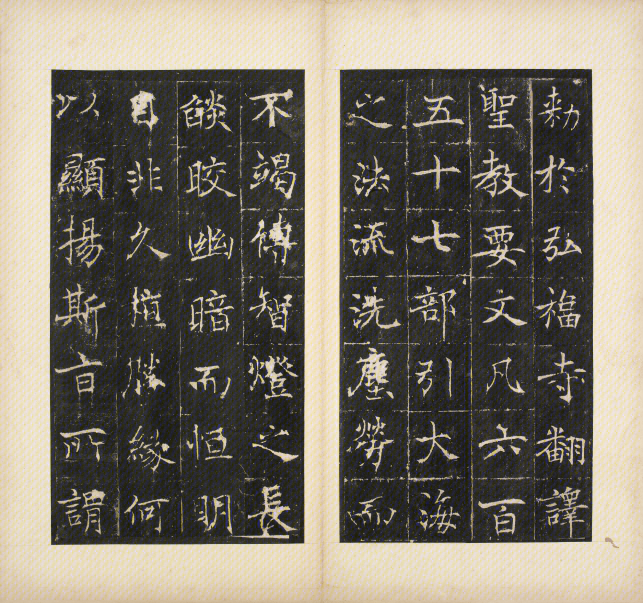 勑於弘福寺翻譯
聖教要文凡六百
五十七部引大海
之法流洗塵勞而
不竭傳智燈之長
燄皎幽暗而恒明
自非久植勝緣何
以顯揚斯旨所謂